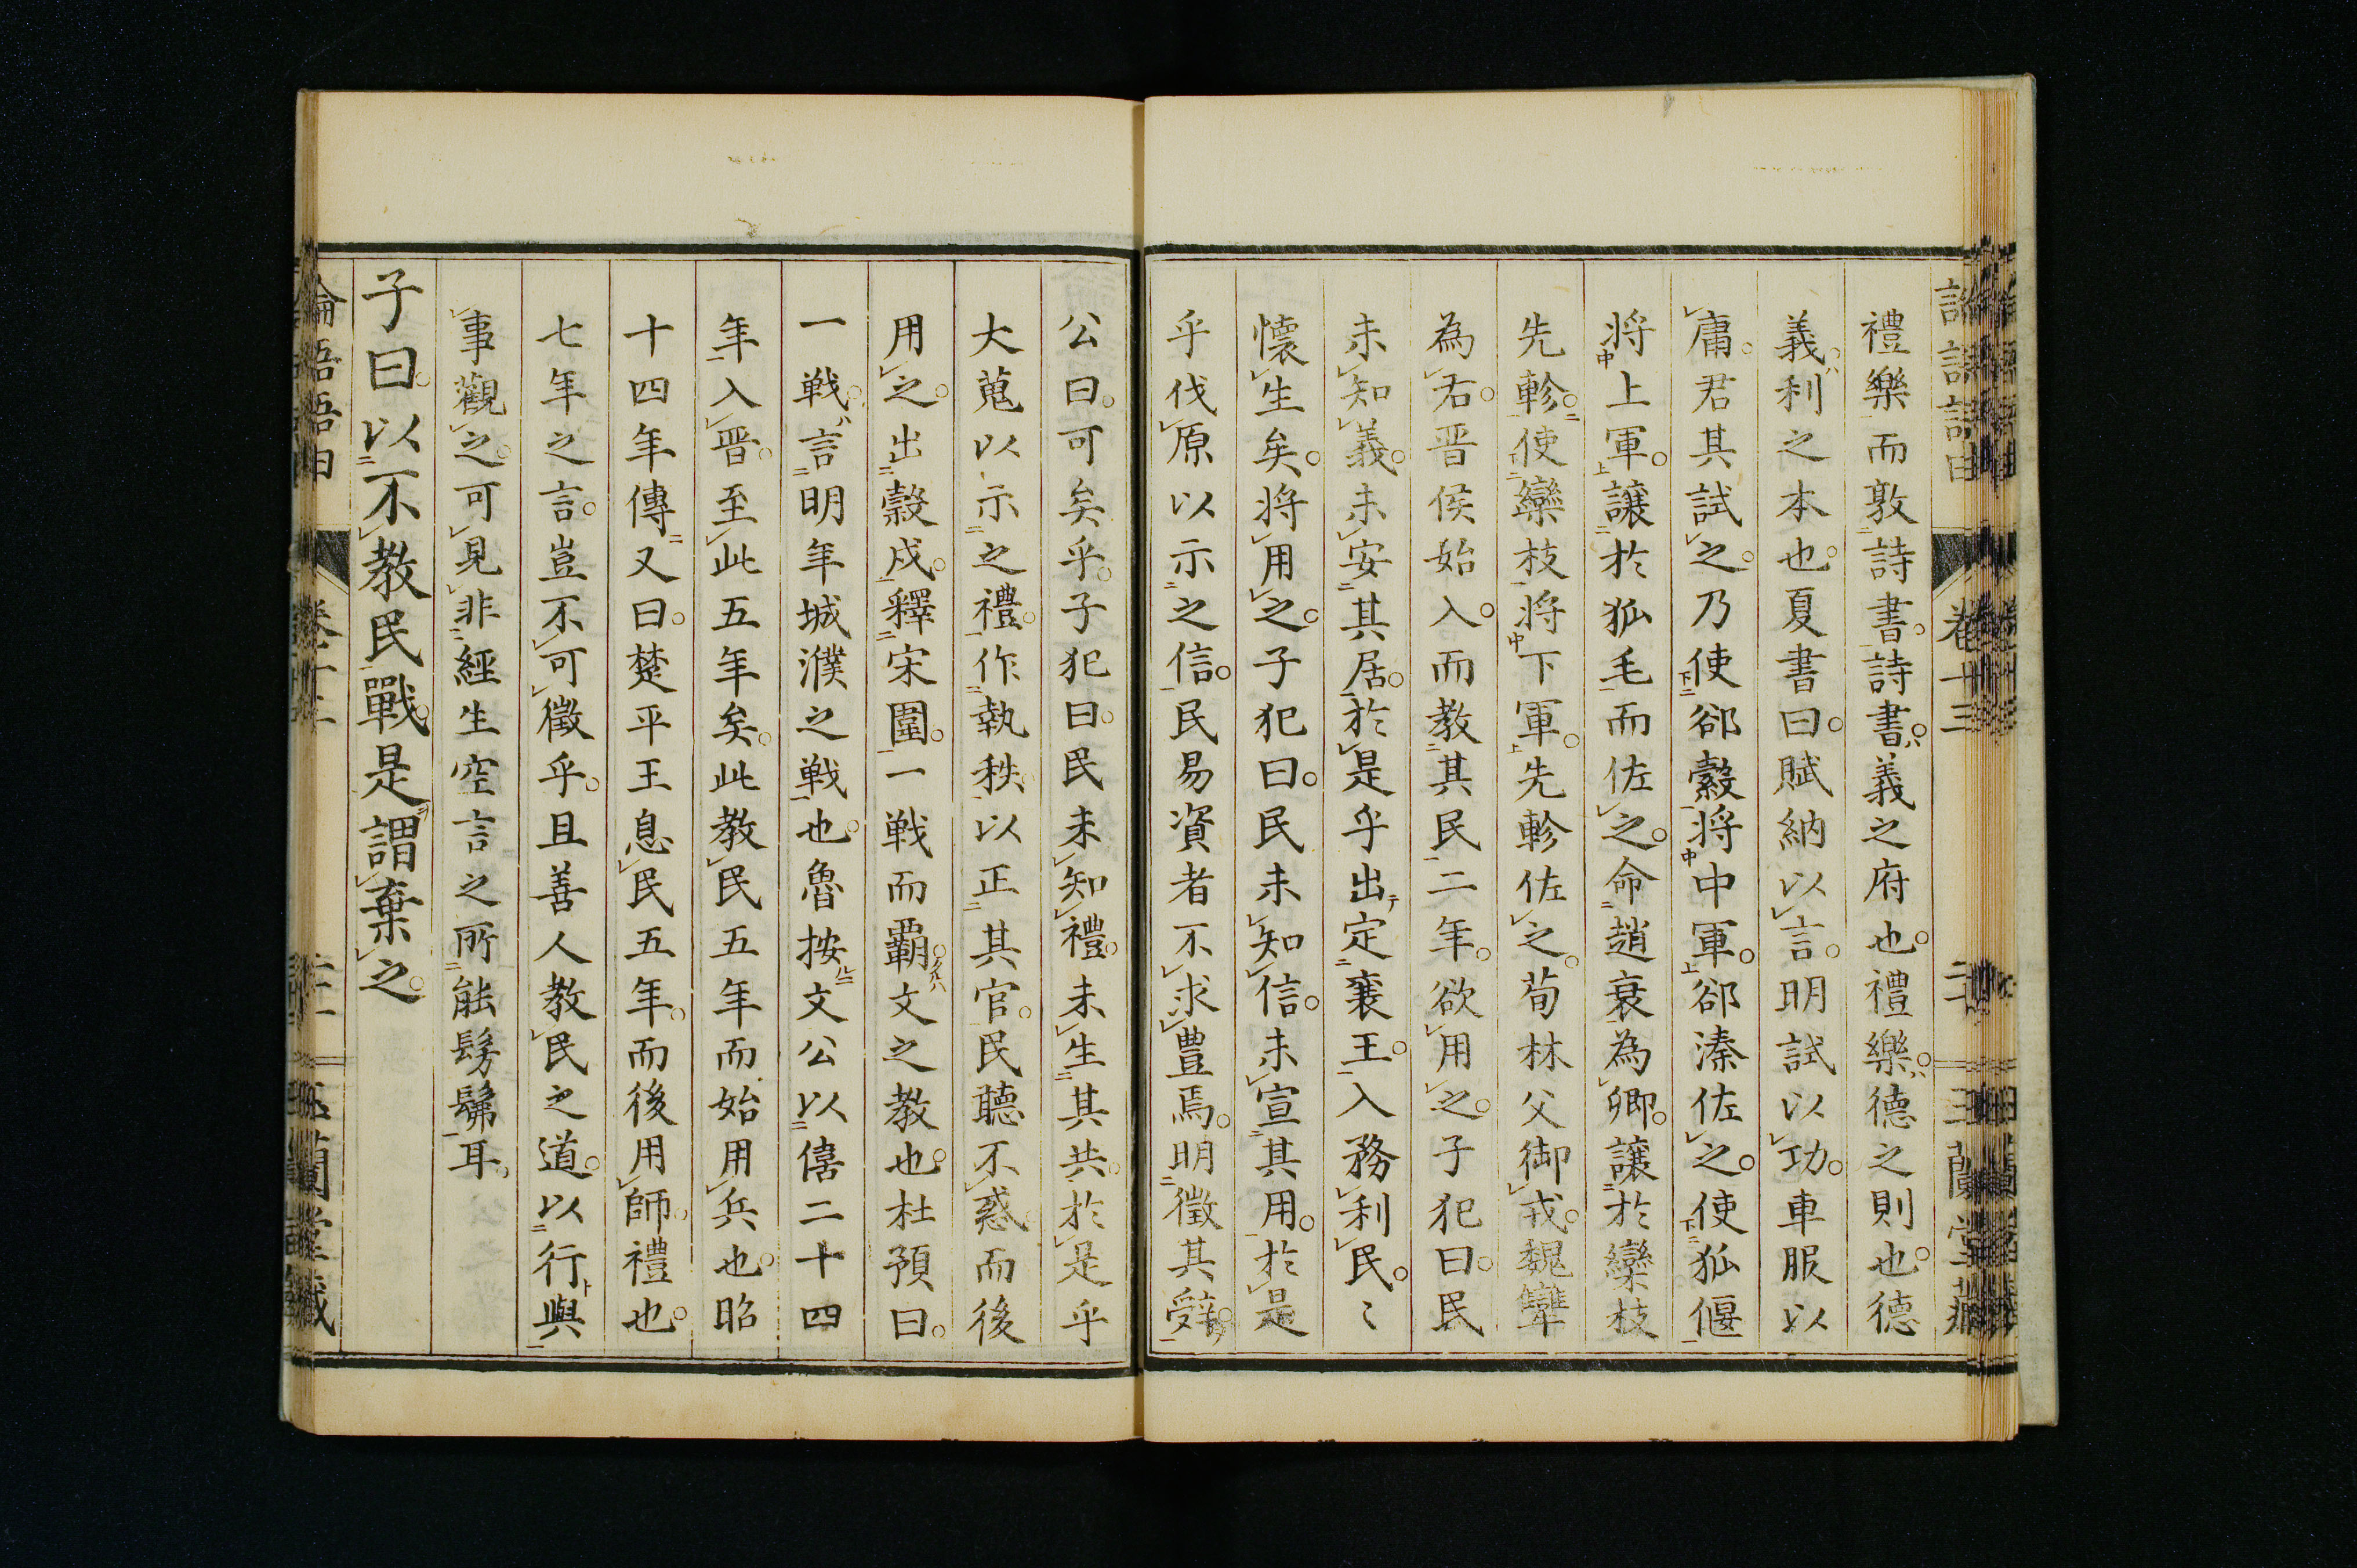 禮樂而敦詩書。詩書。義之府也。禮樂。德之則也。德
義。利之本也。夏書曰。賦納以言。明試以功。車服以
庸。君其試之。乃使郤縠將中軍。郤溱佐之。使狐偃
將上軍。讓於狐毛而佐之。命趙衰為卿。讓於欒枝
先軫。使欒枝將下軍。先軫佐之。荀林父御戎。魏犨
為右。晋侯始入。而教其民二年。欲用之。子犯曰。民
未知義。未安其居。於是乎出定襄王。入務利民。〻
懷生矣。將用之。子犯曰。民未知信。未宣其用。於是
乎伐原以示之信。民易資者不求豊焉。明徵其辤。
公曰。可矣乎。子犯曰。民未知禮。未生其共。於是乎
大蒐以示之禮。作執秩。以正其官。民聽不惑。而後
用之。出糓戍。釋宋圍。一戦而覇。文之教也。杜預曰。
一戦。言明年城濮之戦也。魯按文公以僖二十四
年入晋。至此五年矣。此教民五年而始用兵也。昭
十四年傳又曰。楚平王息民五年。而後用師。禮也。
七年之言。豈不可徵乎。且善人教民之道。以行與
事觀之。可見非經生空言之所能髣髴耳。
子曰。以不教民戰。是謂棄之。